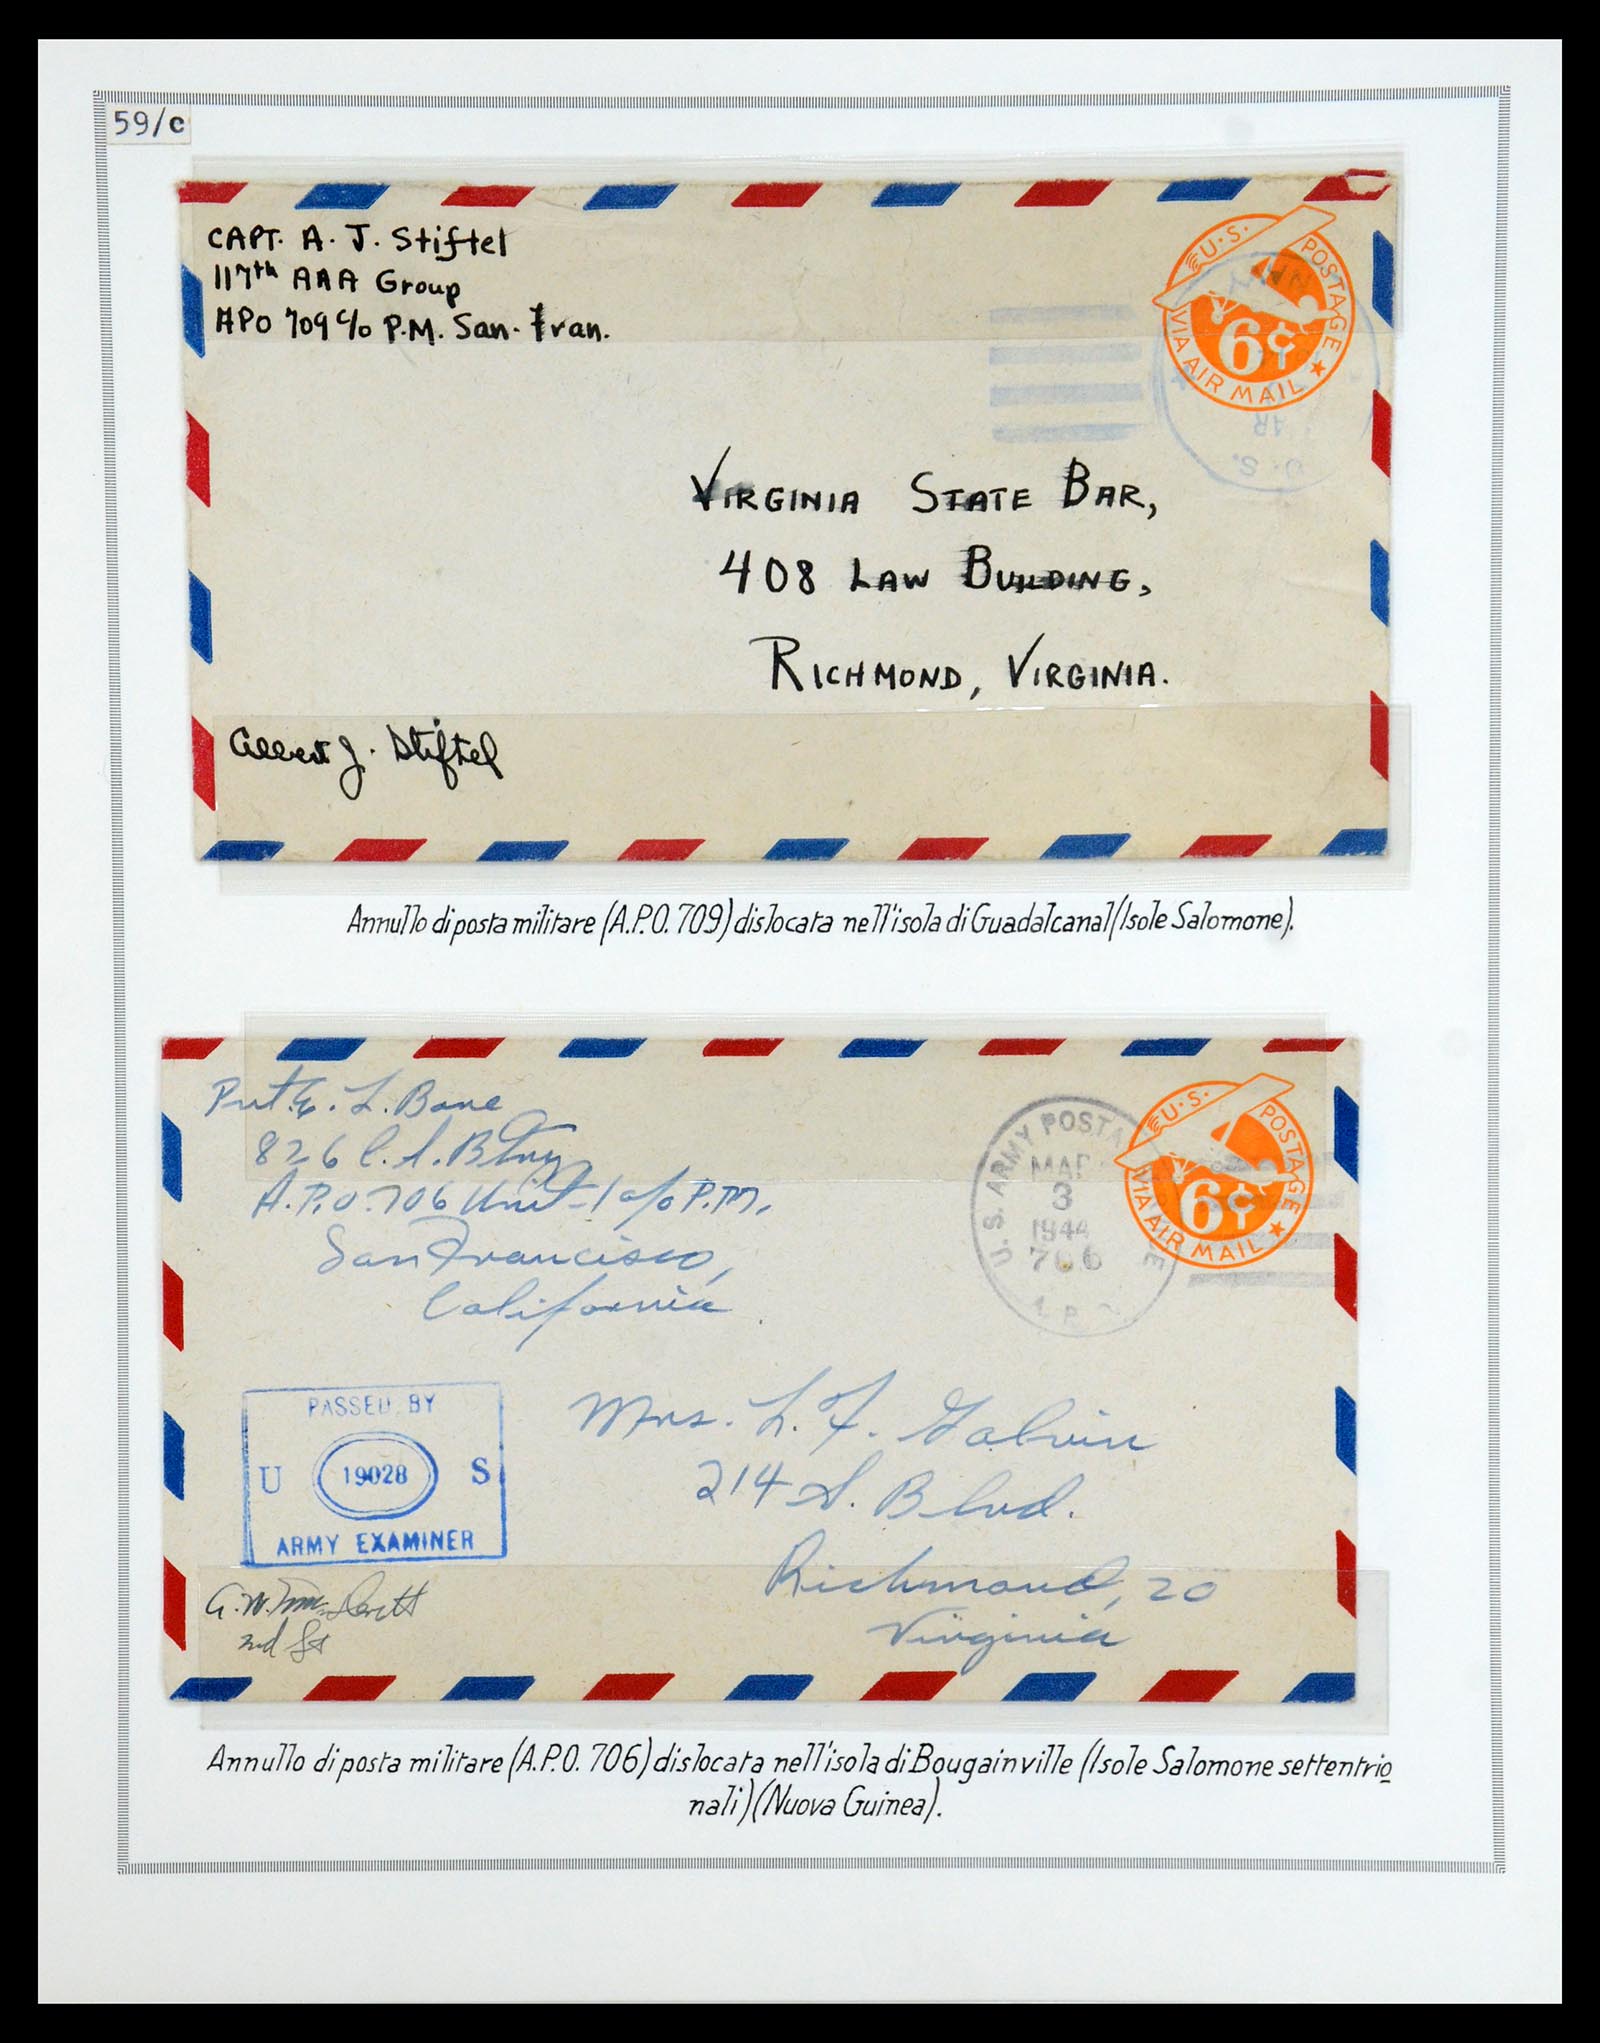 59/c
CAPT. A. J. Stiftel
117th AAA Group
APO 709 c/o P.M. San. Fran.
U.S. POSTAGE
6¢
VIA AIR MAIL
U.S.
VIRGINIA STATE BAR,
408 LAW BUILDING,
RICHMOND, VIRGINIA.
Albert J. Stiftel
Annullo di posta militare (A.P.O. 709) dislocata nell'isola di Guadalcanal (Isole Salomone).
Pvt. E. L. Bane
826 C. A. Btry
A.P.O. 706 Unit-1 c/o P.M.
San Francisco,
California
U.S. ARMY POSTAL
MAR
3
1944
706
U.S. POSTAGE
6¢
VIA AIR MAIL
PASSED BY
U 19028 S
ARMY EXAMINER
Mrs. L. F. Galvin
214 S. Blvd.
Richmond, 20
Virginia
2nd Lt
Annullo di posta militare (A.P.O. 706) dislocata nell'isola di Bougainville (Isole Salomone settentrio
nali) (Nuova Guinea).